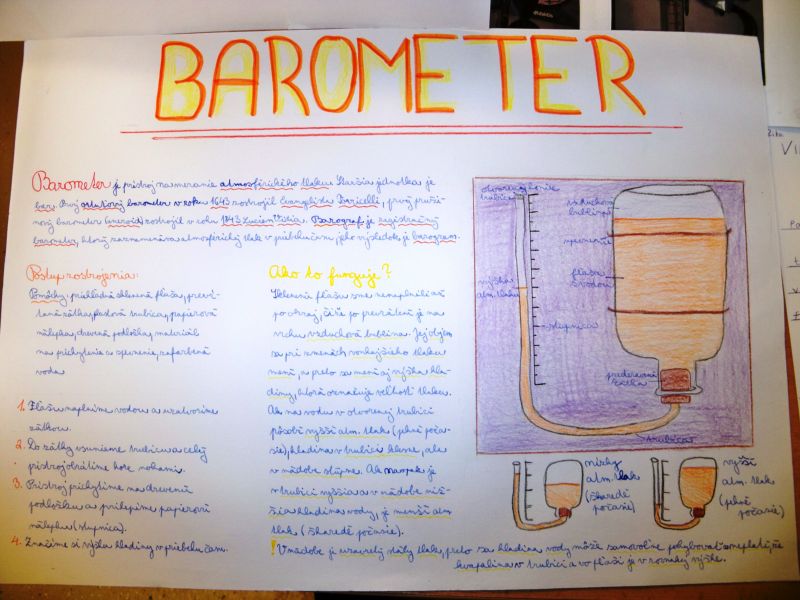 BAROMETER
Barometer je prístroj na meranie atmosférického tlaku. Staršia jednotka je
bar. Prvý ortuťový barometer v roku 1643 zostrojil Evangelista Torricelli, prvý pruži-
nový barometer (aneroid) zostrojil v roku 1843 Lucien Vidia. Barograf je registračný
barometer, ktorý zaznamenáva atmosférický tlak v priebehu času jeho výsledok je barogram.
Postup zostrojenia:
Pomôcky: priehľadná sklenená fľaša, prevŕ-
taná zátka, plastová trubica, papierová
nálepka, drevená podložka, materiál
na prichytenie a spevnenie, zafarbená
voda
1. Fľašu naplníme vodou a uzatvoríme
zátkou.
2. Do zátky vsunieme trubicu a celý
prístroj obrátime hore nohami.
3. Prístroj prichytíme na drevenú
podložku a prilepíme papierovú
nálepku (stupnica).
4. Značíme si výšku hladiny v priebehu čaru.
Ako to funguje?
Sklenenú fľašu sme nenaplnili až
po okraj, čiže po prevrátení je na
vrchu vzduchová bublina. Jej objem
sa pri zmenách vonkajšieho tlaku
mení, a preto sa mení aj výška hla-
diny, ktorá označuje veľkosť tlaku.
Ak na vodu v otvorenej trubici
pôsobí vyšší atm. tlak (pekné poča-
sie), hladina v trubici klesne, ale
v nádobe stúpne. Ak naopak je
v trubici vyššia a v nádobe niž-
šia hladina vody, je menší atm.
tlak (škaredé počasie).
! V nádobe je uzavretý stály tlak, preto sa hladina vody môže samovoľne pohybovať a neplatí, že
kvapalina v trubici a vo fľaši je v rovnakej výške.
trubice
vzduchová
bublina
spevnenie
fľaša
s vodou
výška
atm. tlaku
stupnica
prederavená
zátka
trubica
nízky
atm. tlak
(škaredé
počasie)
vyšší
atm. tlak
(pekné
počasie)